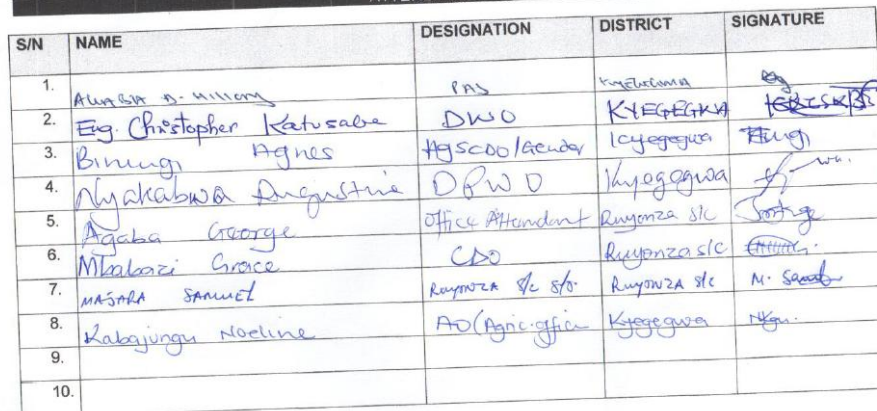 S/N NAME DESIGNATION DISTRICT SIGNATURE
1. PAS
2. Eng. Christopher Katusabe DWO KYEGEGWA
3. Binungi Agnes AgSCDO/Gender Kyegegwa
4. Nyakabwa Augustine DPWO Kyegegwa
5. Agaba George Office Attendant Ruyonza S/C
6. Mbabazi Grace CDO Ruyonza S/C
7. MASARA SAMUEL RUYONZA S/C S/O. RUYONZA S/C M.
8. Kabajungu Noeline AO (Agric. officer Kyegegwa
9.
10.